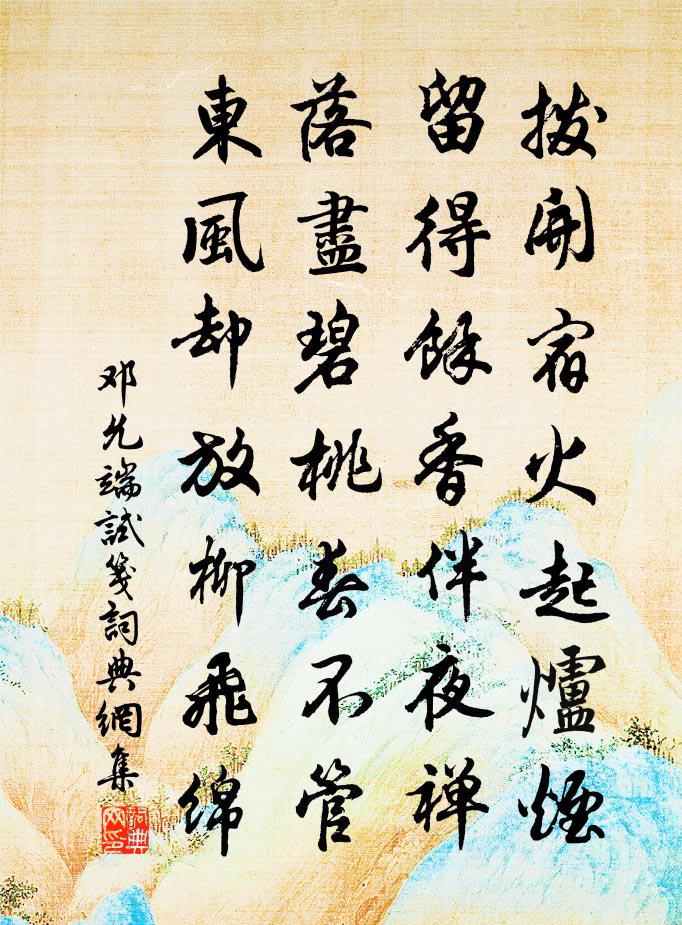 拨開宿火起爐煙
留得餘香伴夜禅
落盡碧桃春不管
東風却放柳飛綿
邓允端試箋詞典網集
詞典网印